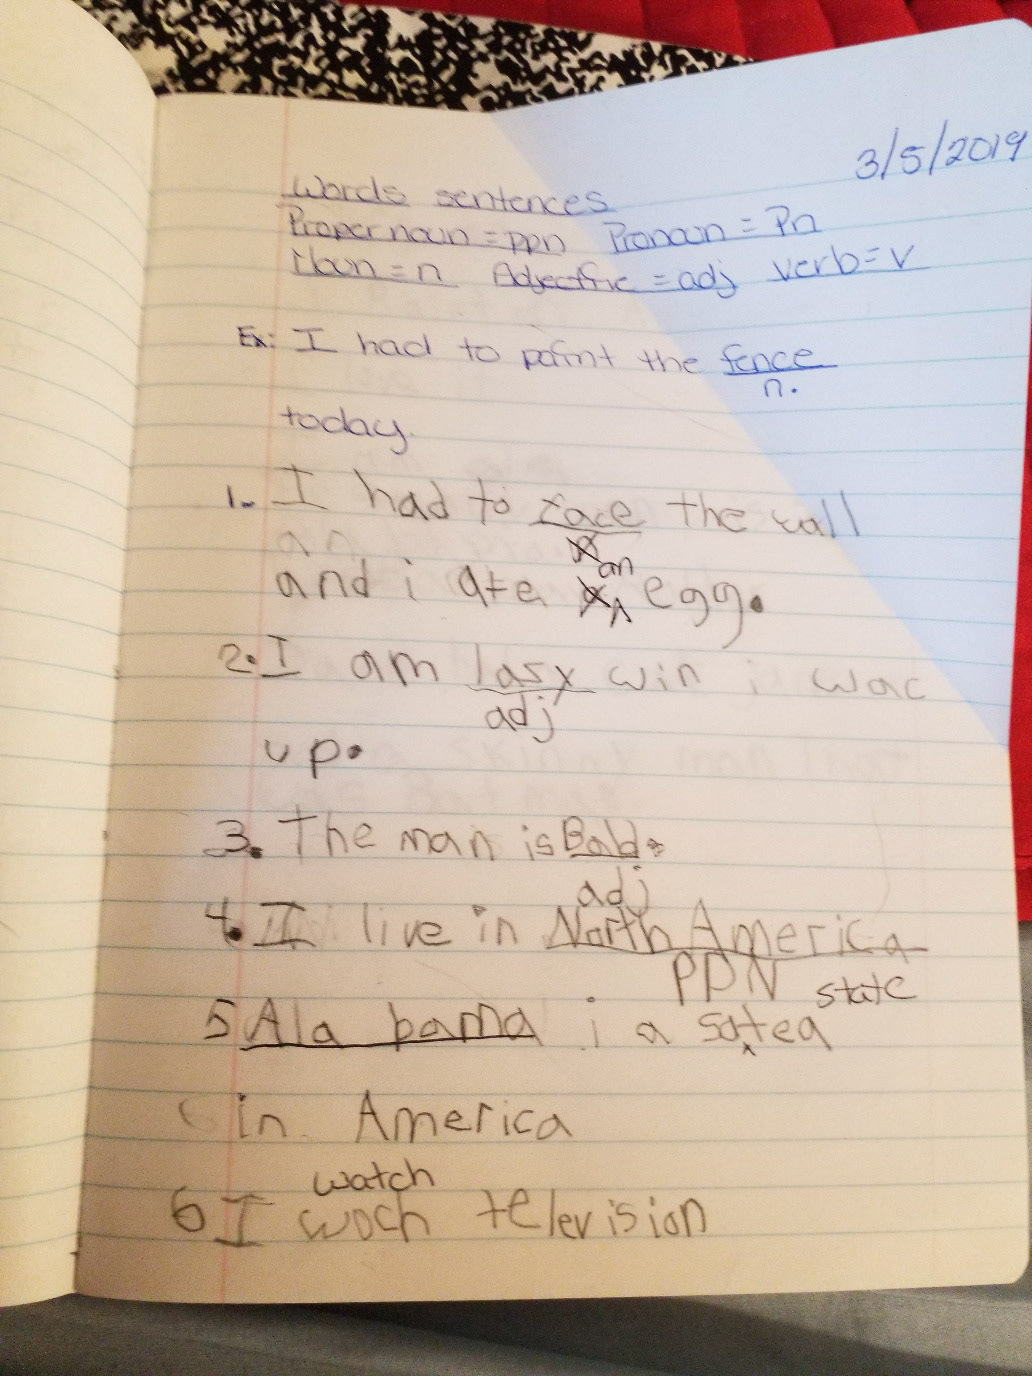 3/5/2019
Words sentences
Proper noun = ppn Pronoun = Pn
Noun = n Adjectific = adj verb = v
Ex: I had to paint the fence
n.
today.
1. I had to race the wall
an
and i ate egg.
2. I am lasy win i wac
adj
up.
3. The man is Bald.
adj
4. I live in North America
PPN
state
5 Ala bama i a sotea
in America
watch
6 I woch television